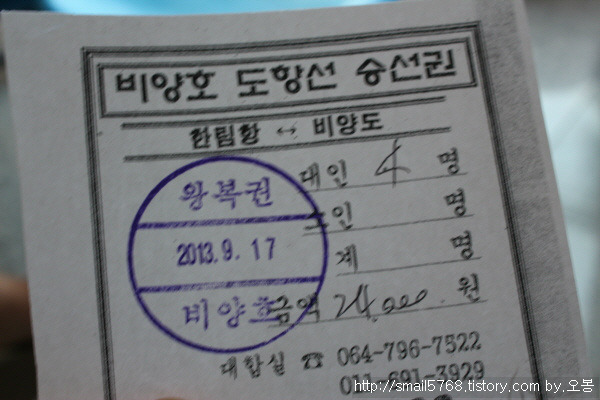 비양호 도항선 승선권
한림항 ↔ 비양도
대인 4 명
소인 명
계 명
금액 24,000 원
왕복권
2013. 9. 17
비양호
대합실 ☎ 064-796-7522
011-691-3929
http://smail5768.tistory.com by.오봉